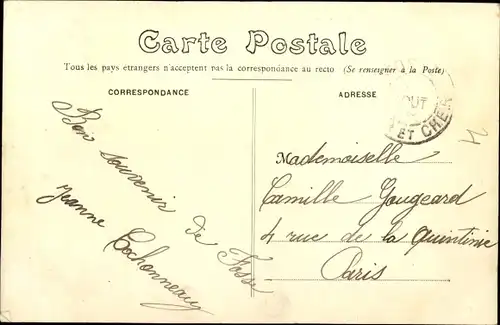 Carte Postale
Tous les pays étrangers n'acceptent pas la correspondance au recto (Se renseigner à la Poste)
CORRESPONDANCE
Bon souvenir de Fossé
Jeanne
Cochonneau
ADRESSE
OUT
ET CHER
Mademoiselle
Camille Gougeard
4 rue de la Quintinie
Paris